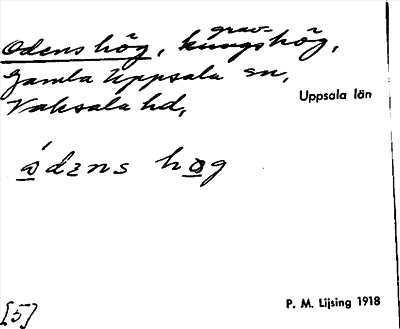 Odens hög, kungshög,
grav-
Gamla Uppsala sn,
Vaksala hd,
Uppsala län
ódens hög
[5]
P. M. Lijsing 1918